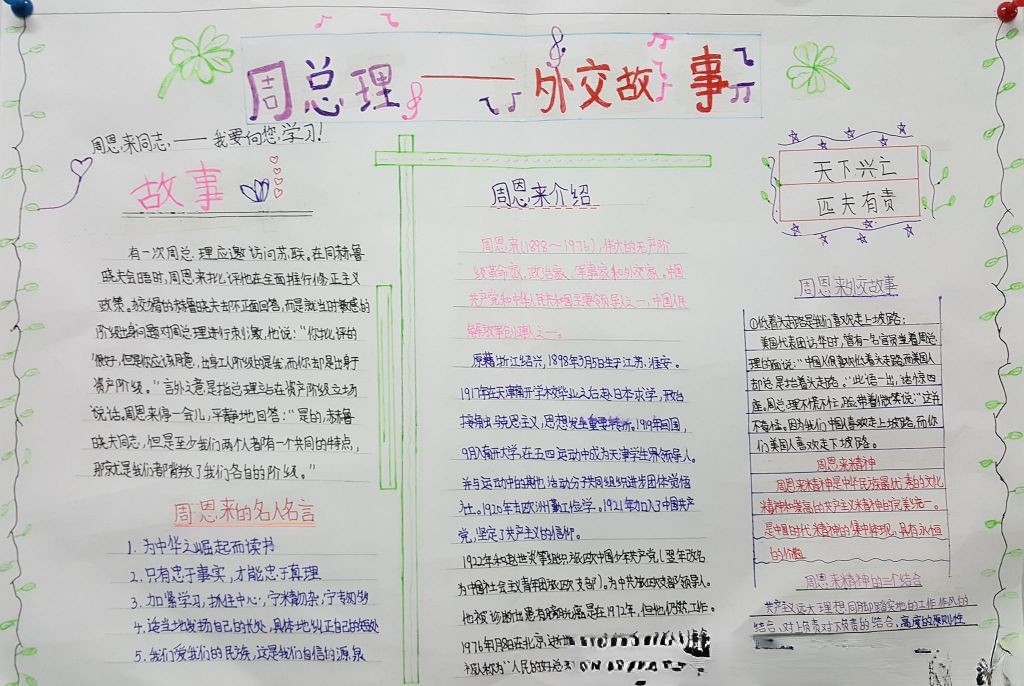 周总理——外交故事
周恩来同志,——我要向您学习!
故事
有一次周总理应邀访问苏联。在同赫鲁
晓夫会晤时,周恩来批评他在全面推行修正主义
政策。狡猾的赫鲁晓夫却不正面回答,而是就当时敏感的
阶级出身问题对周总理进行刺激,他说:“你批评的
很好,但是你应该同意,出身工人阶级的是我,而你却是出身于
资产阶级。”言外之意是指总理站在资产阶级立场
说话。周恩来停一会儿,平静地回答:“是的,赫鲁
晓夫同志,但是至少我们两个人都有一个共同的特点,
那就是我们都背叛了我们各自的阶级。”
周恩来的名人名言
1. 为中华之崛起而读书
2. 只有忠于事实,才能忠于真理
3. 加紧学习,抓住中心,宁精勿杂,宁专勿多
4. 适当地发扬自己的长处,具体地纠正自己的短处
5. 我们爱我们的民族,这是我们自信的源泉
周恩来介绍
周恩来(1898~1976),伟大的无产阶
级革命家、政治家、军事家和外交家、中国
共产党和中华人民共和国主要领导人之一,中国人民
解放军创建人之一。
原籍浙江绍兴,1898年3月5日生于江苏淮安。
1917年在天津南开学校毕业之后赴日本求学,开始
接触马克思主义,思想发生重要转折。1919年回国,
9月入南开大学,在五四运动中成为天津学生界领导人。
并与运动中的其他活动分子共同组织进步团体觉悟
社。1920年去欧洲勤工俭学。1921年加入了中国共产
党,坚定了共产主义的信仰。
1922年和赵世炎等组织旅欧中国少年共产党(翌年改名
为中国社会主义青年团旅欧支部)。为中共旅欧支部领导人。
他被诊断出患有膀胱癌是在1972年,但他仍然工作。
1976年1月8日在北京逝世
被人称为“人民的好总
天下兴亡
匹夫有责
周恩来外交故事
①低着头走路是我们喜欢走上坡路:
美国代表团访华时,曾有一名官员当着周总
理的面说:“中国人很喜欢低着头走路,而美国人
却总是抬着头走路。”此语一出,话惊四
座。周总理不慌不忙,脸带着微笑说:“这并
不奇怪。因为我们中国人喜欢走上坡路,而你
们美国人喜欢走下坡路。
周恩来精神
周恩来精神是中华民族最优秀的文化
精神和崇高的共产主义精神的完美统一。
是中国时代精神的集中体现,具有永恒
的价值
周恩来精神的三个结合
共产主义远大理想同脚踏实地的工作作风的
结合,对上负责对下负责的结合,高度的原则性